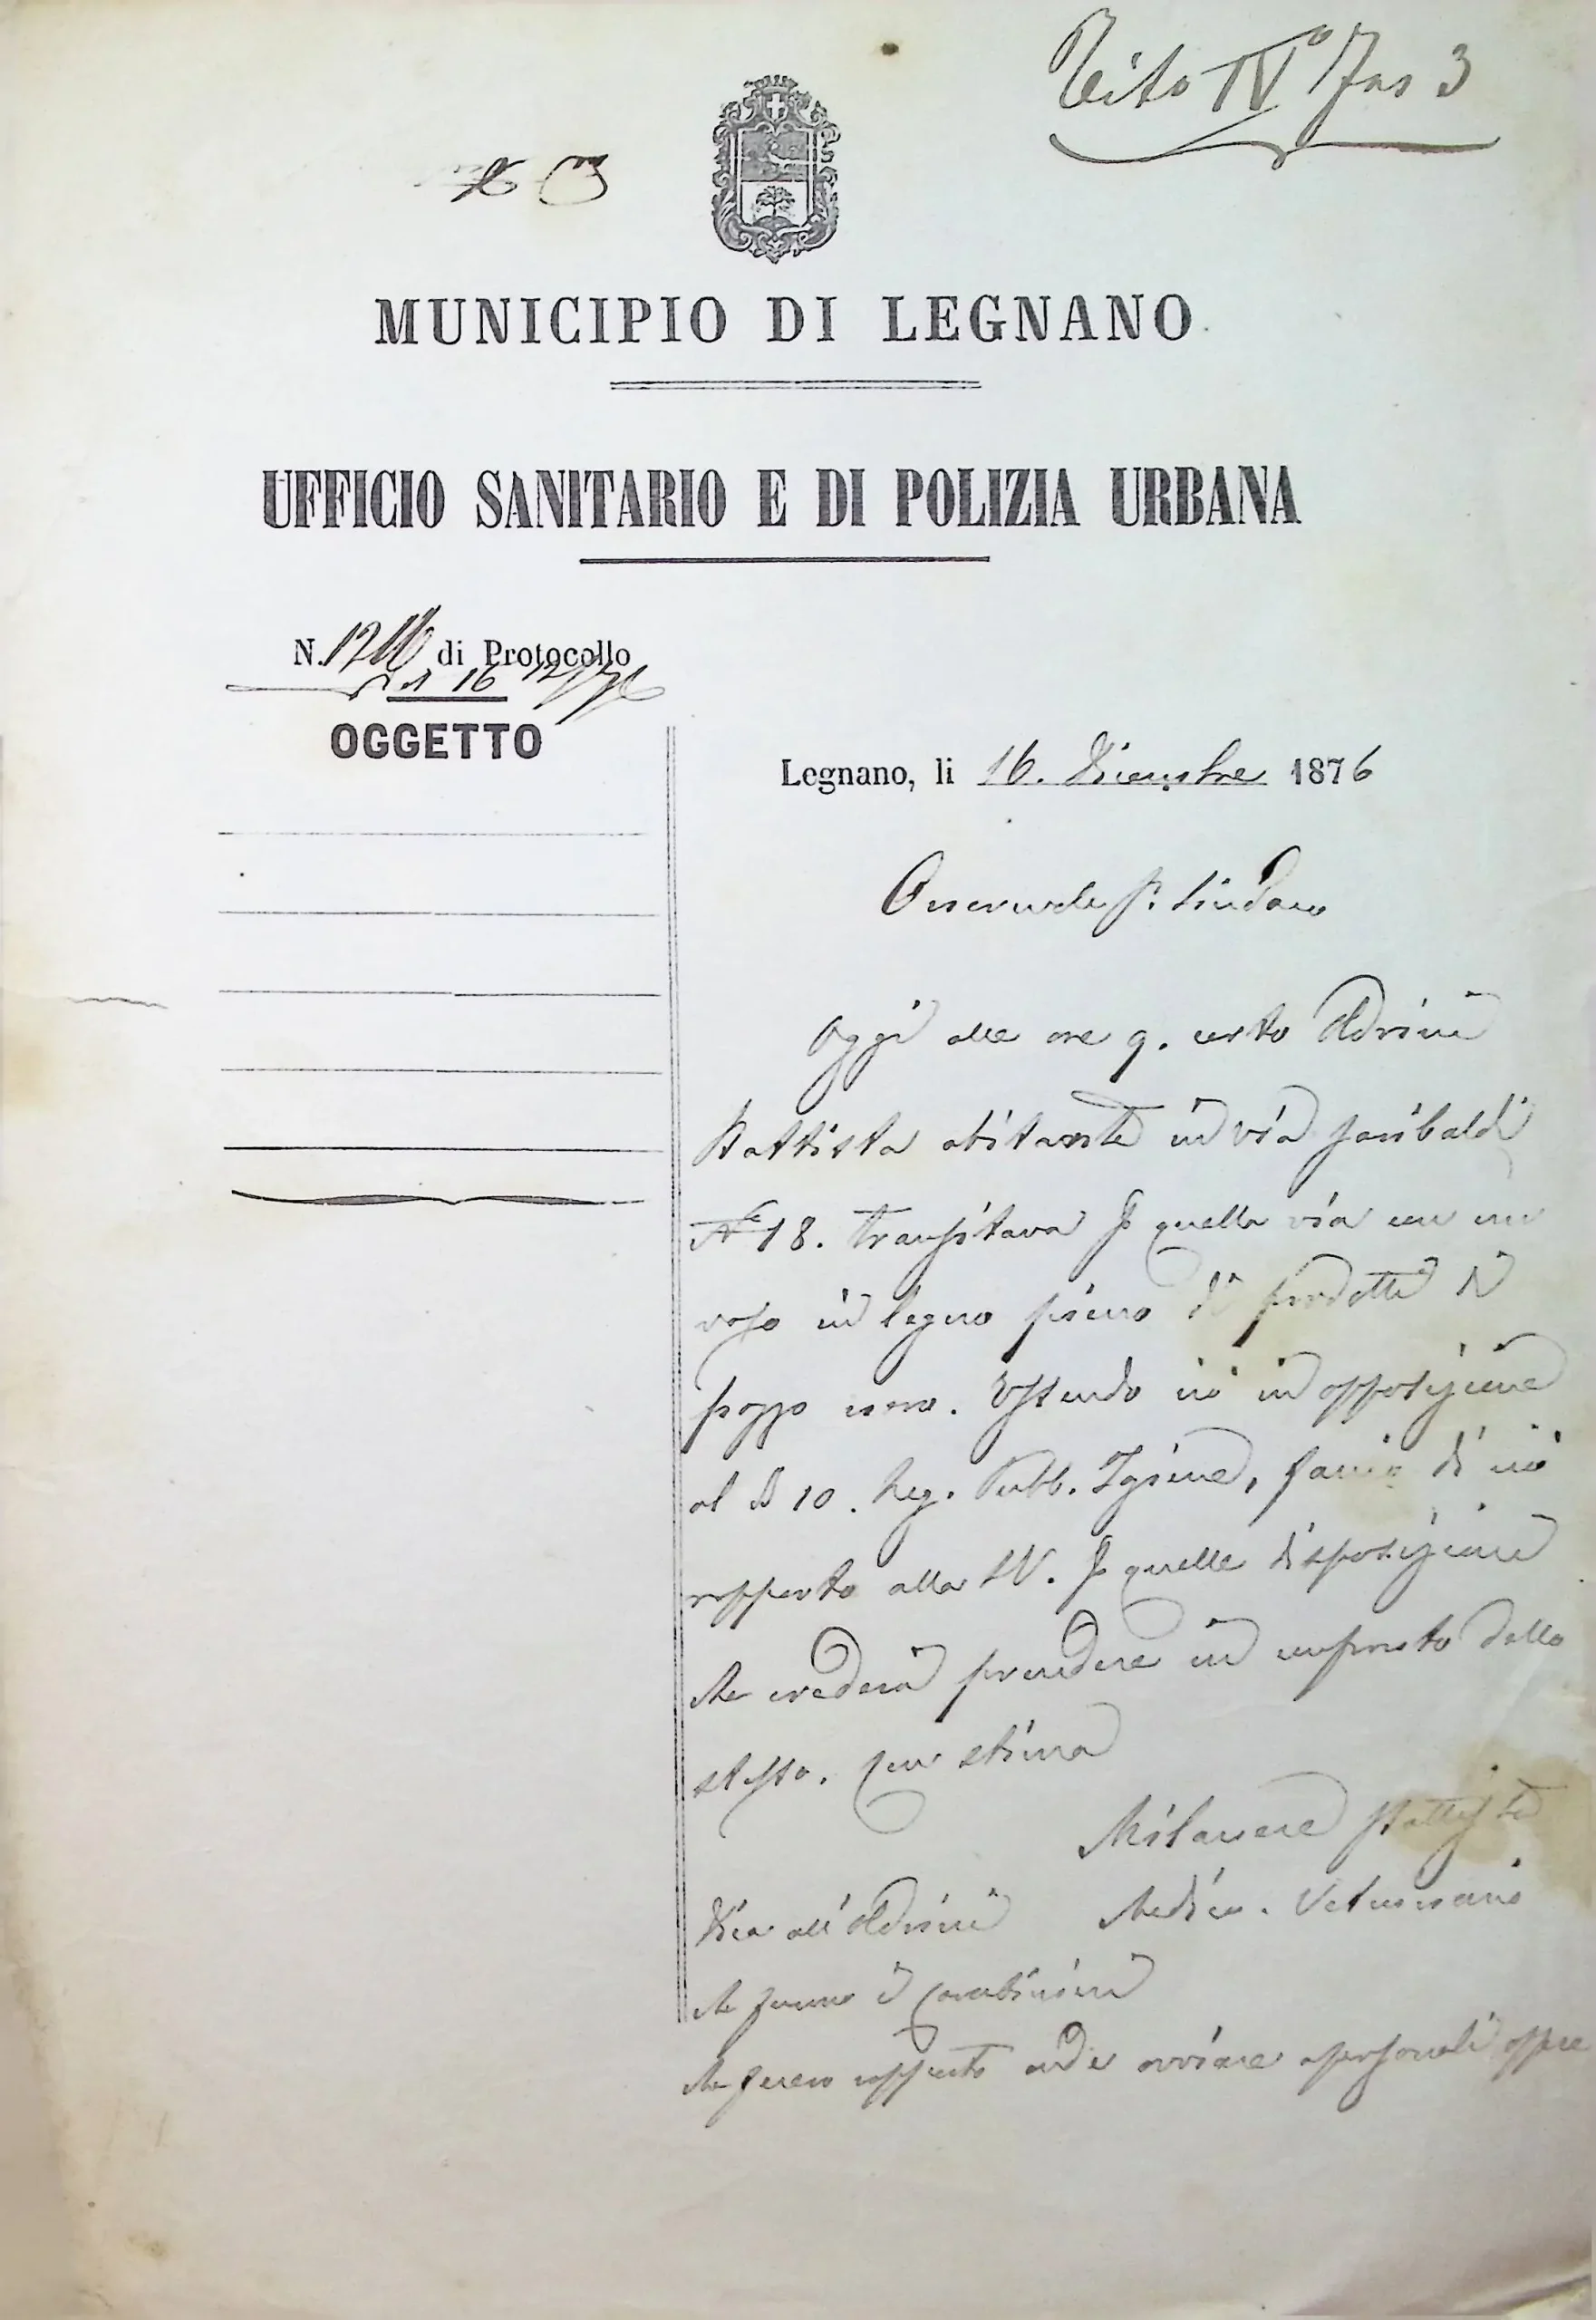 Tito IVº Fas 3
MUNICIPIO DI LEGNANO
UFFICIO SANITARIO E DI POLIZIA URBANA
N. 1216 di Protocollo
del 16 12/76
OGGETTO
Legnano, li 16. Dicembre 1876
Onorevole Sr. Sindaco
Oggi alle ore 9. certo Oldrini
Battista abitante in via Garibaldi
Nº 18. transitava p quella via con un
vaso in legno pieno di prodotti di
pozzo nero. Essendo ciò in opposizione
al § 10. Reg. Pubb. Igiene, faccio di ciò
rapporto alla SV. p quelle disposizioni
che crederà prendere in confronto dello
stesso. Con stima
Milanese Battista
Medico. Veterinario
Dica all'Oldrini
che furono i Carabinieri
che fecero rapporto onde ovviare a personali offese